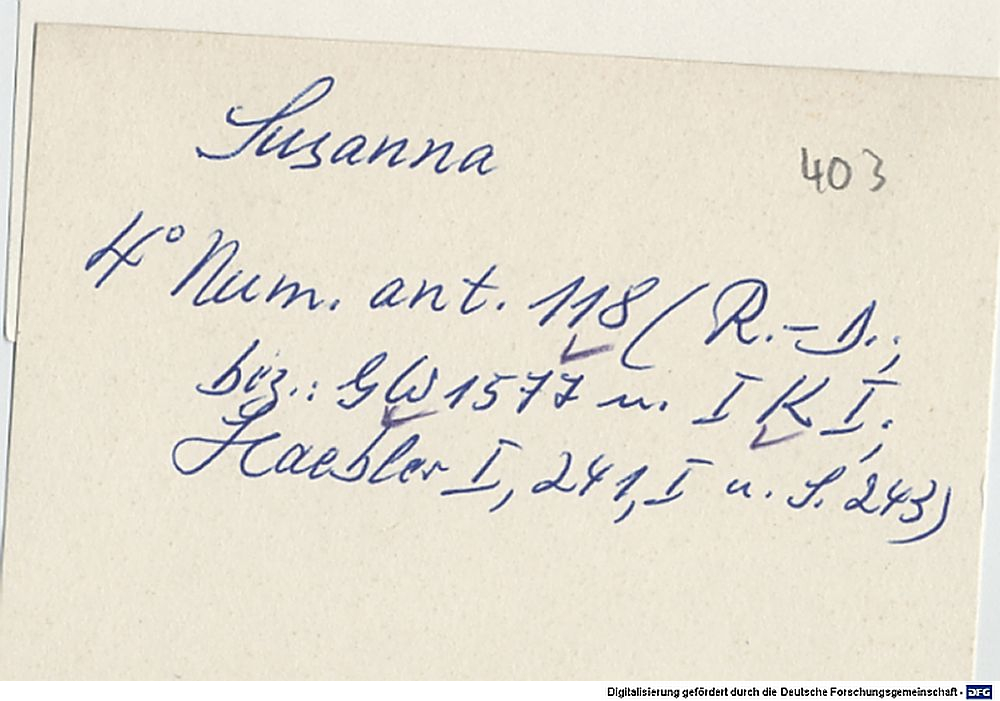 Susanna
403
4° Num. ant. 118 ( R.-D.;
bez.: GW 1577 u. I K I;
Haebler I, 241, I u. S. 243)
Digitalisierung gefördert durch die Deutsche Forschungsgemeinschaft - DFG